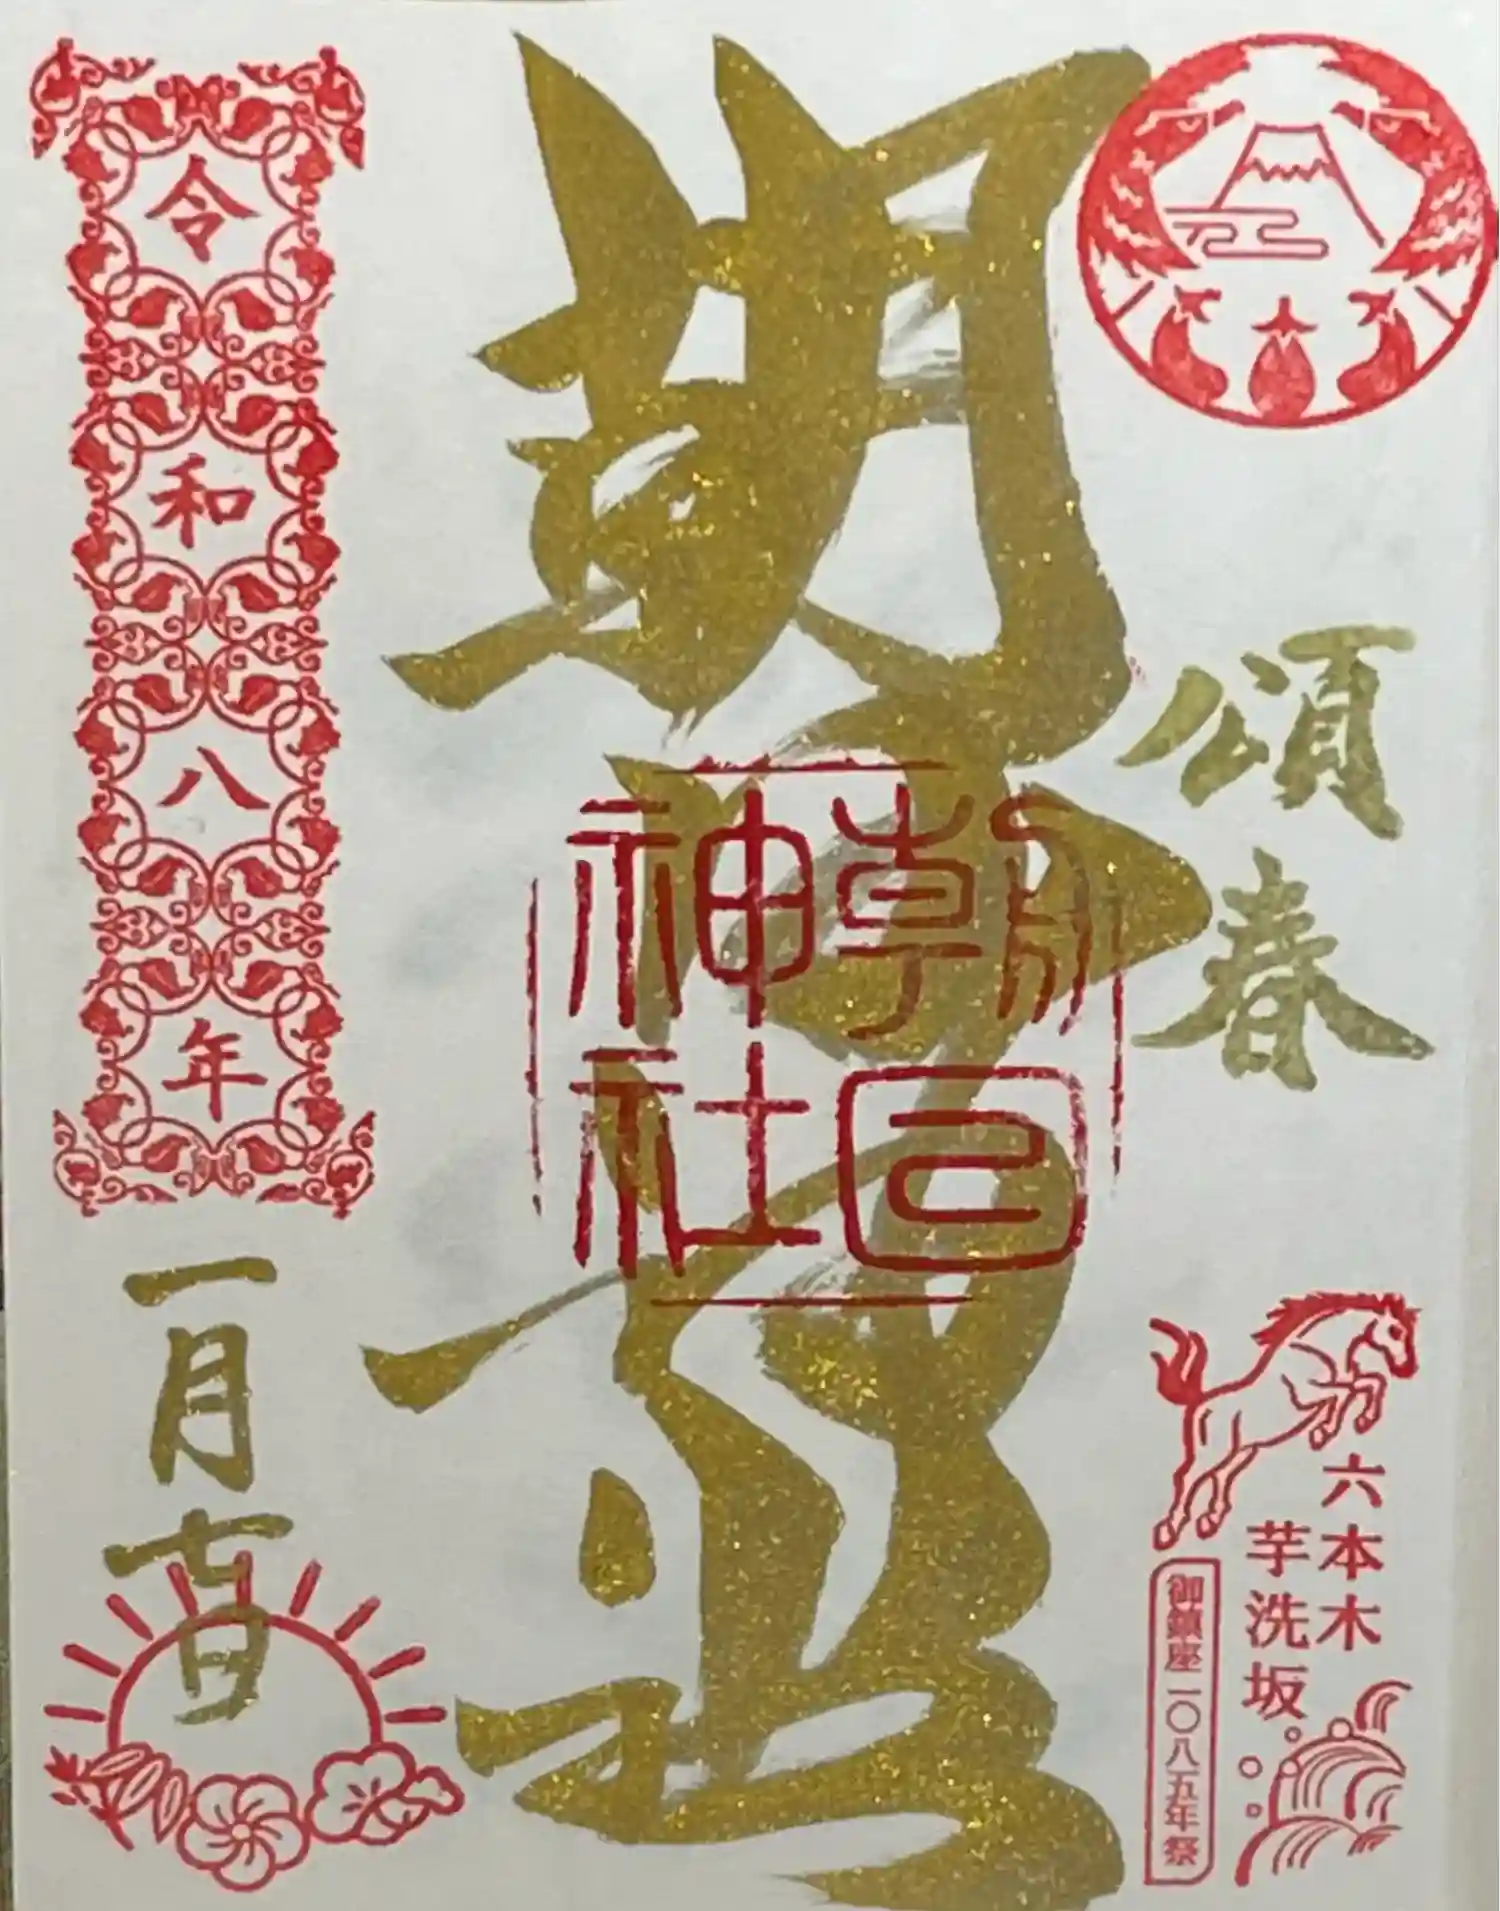 頌春
六本木
芋洗坂
御鎮座一〇八五年祭
朝日神社
朝日
神社
令和八年
一月七日